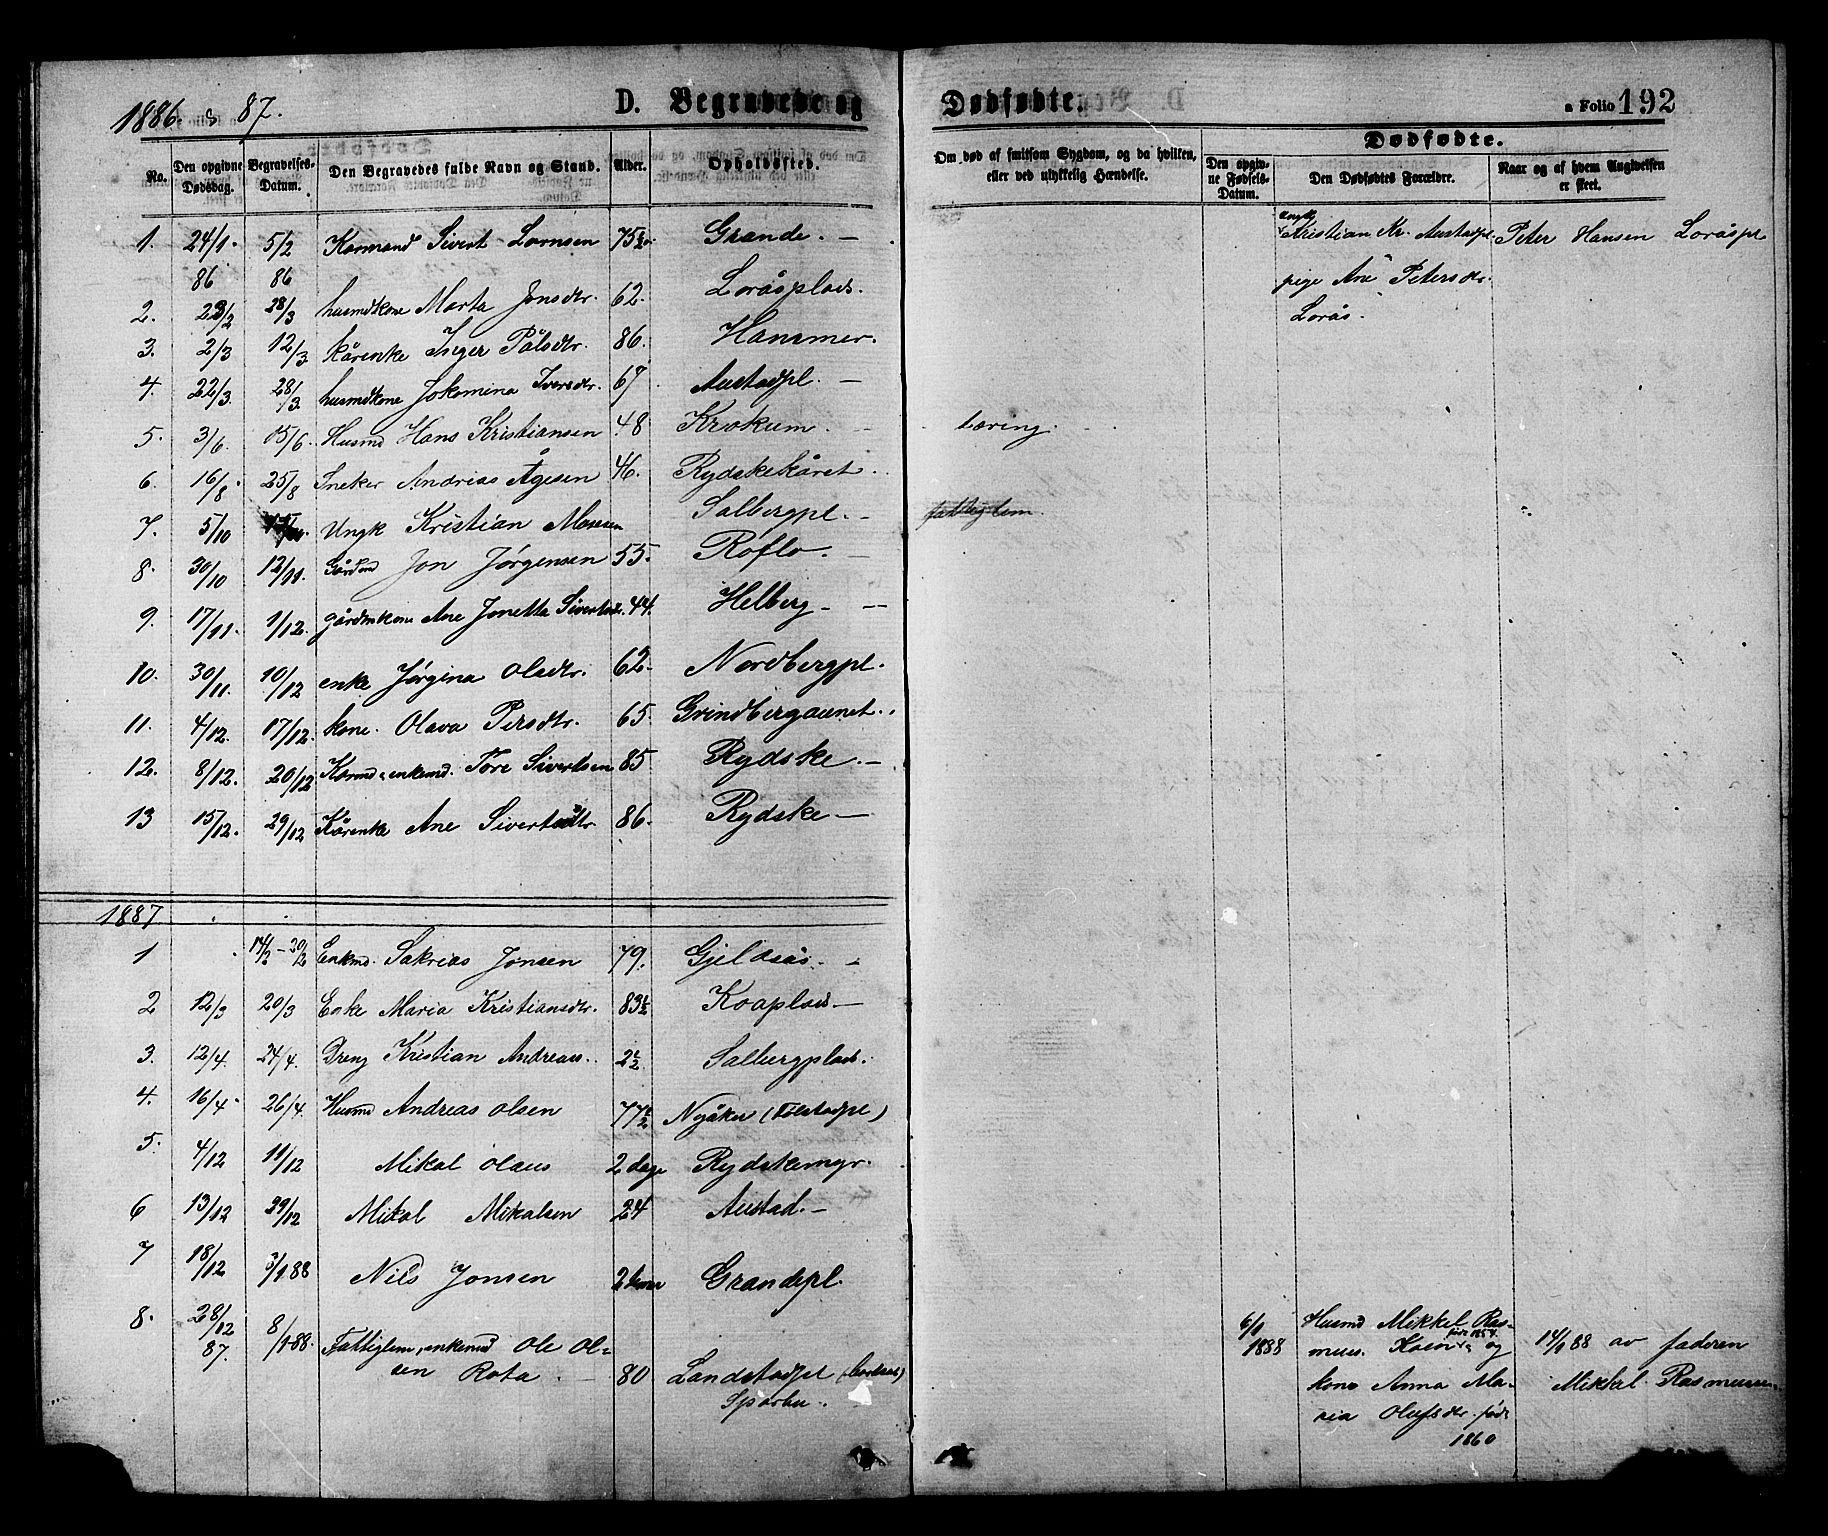 1886 & 87.
D. Begravede og Dødfødte.
a Folio 192
No. Den opgivne Dødsdag. Begravelses-Datum. Den Begravedes fulde Navn og Stand. Alder. Opholdssted.
Om død af smitsom Sygdom, og da hvilken, eller ved ulykkelig Hændelse. Den opgivne Fødsels-Datum. Dødfødte. Den Dødfødtes Forældre. Naar og af hvem Angivelsen er skeet.
1. 24/1. 86 5/2 86 Kormand Sivert Lornsen 75½ Grande. —
2. 23/2 28/3 husmdkone Marta Jonsdtr. 62. Loråsplads.
3. 2/3 12/3 kårenke Inger Pålsdtr. 86. Hammer.
4. 22/3. 28/3. husmdkone Jokomina Iversdtr. 67. Austadpl. —
5. 3/6. 15/6. Husmd Hans Kristiansen 48 Krokum. — tæring.
6. 16/8. 25/8 Sneker Andrias Ågesen 46. Rydskekåret.
7. 5/10 Ungk Kristian Mosesen Salbergpl. — fattiglem.
8. 30/10 12/11. Gårdmd Jon Jørgensen 55. Røflo. —
9. 17/11. 1/12. gårdmkone Ane Jonetta Sivertsdr. 44. Helberg —
10. 30/11. 10/12 enke Jørgina Olsdtr. 62. Nordbergpl.
11. 4/12. 17/12. kone. Olava Persdtr. 65. Grindbergaunet.
12. 8/12. 20/12 Kormd, enkemd. Tore Sivertsen 85. Rydske. —
13 15/12. 29/12 Kårenke Ane Sivertsdtr. 86. Rydske —
ungk Kristian Kr. Austadpl. Peter Hansen Loråspl
pige Ane Petersdr.
Lorås.
1887
1 14/2 – 20/2 Enkmd. Sakrias Jonsen 79. Gjeldsås. —
2 12/3 20/3 Enke Maria Kristiansdtr. 83½ Koaplads —
3. 12/4. 24/4. Dreng Kristian Andreas. 2½ Salbergplads.
4. 16/4. 26/4. Husmd Andreas Olsen 77½ Nyåker (Tolstadpl)
5. 4/12 11/12 Mikal Olaus 2 dage Rydskemyr.
6 13/12 29/12 Mikal Mikalsen 24 Austad. —
7 18/12 3/1 88 Nils Jonsen Grandspl.
8. 28/12 87. 8/1 88. Fattiglem, enkemd Ole Ol-
sen Rota. — 80 Landstadpl
Sparbu.
6/1 1888 Husmd Mikkel Ras-
mus. født 1854. og 14/1 88 av faderen
kone Anna Ma- Mikkel Rasmussen
ria Olufsdr. født
1860